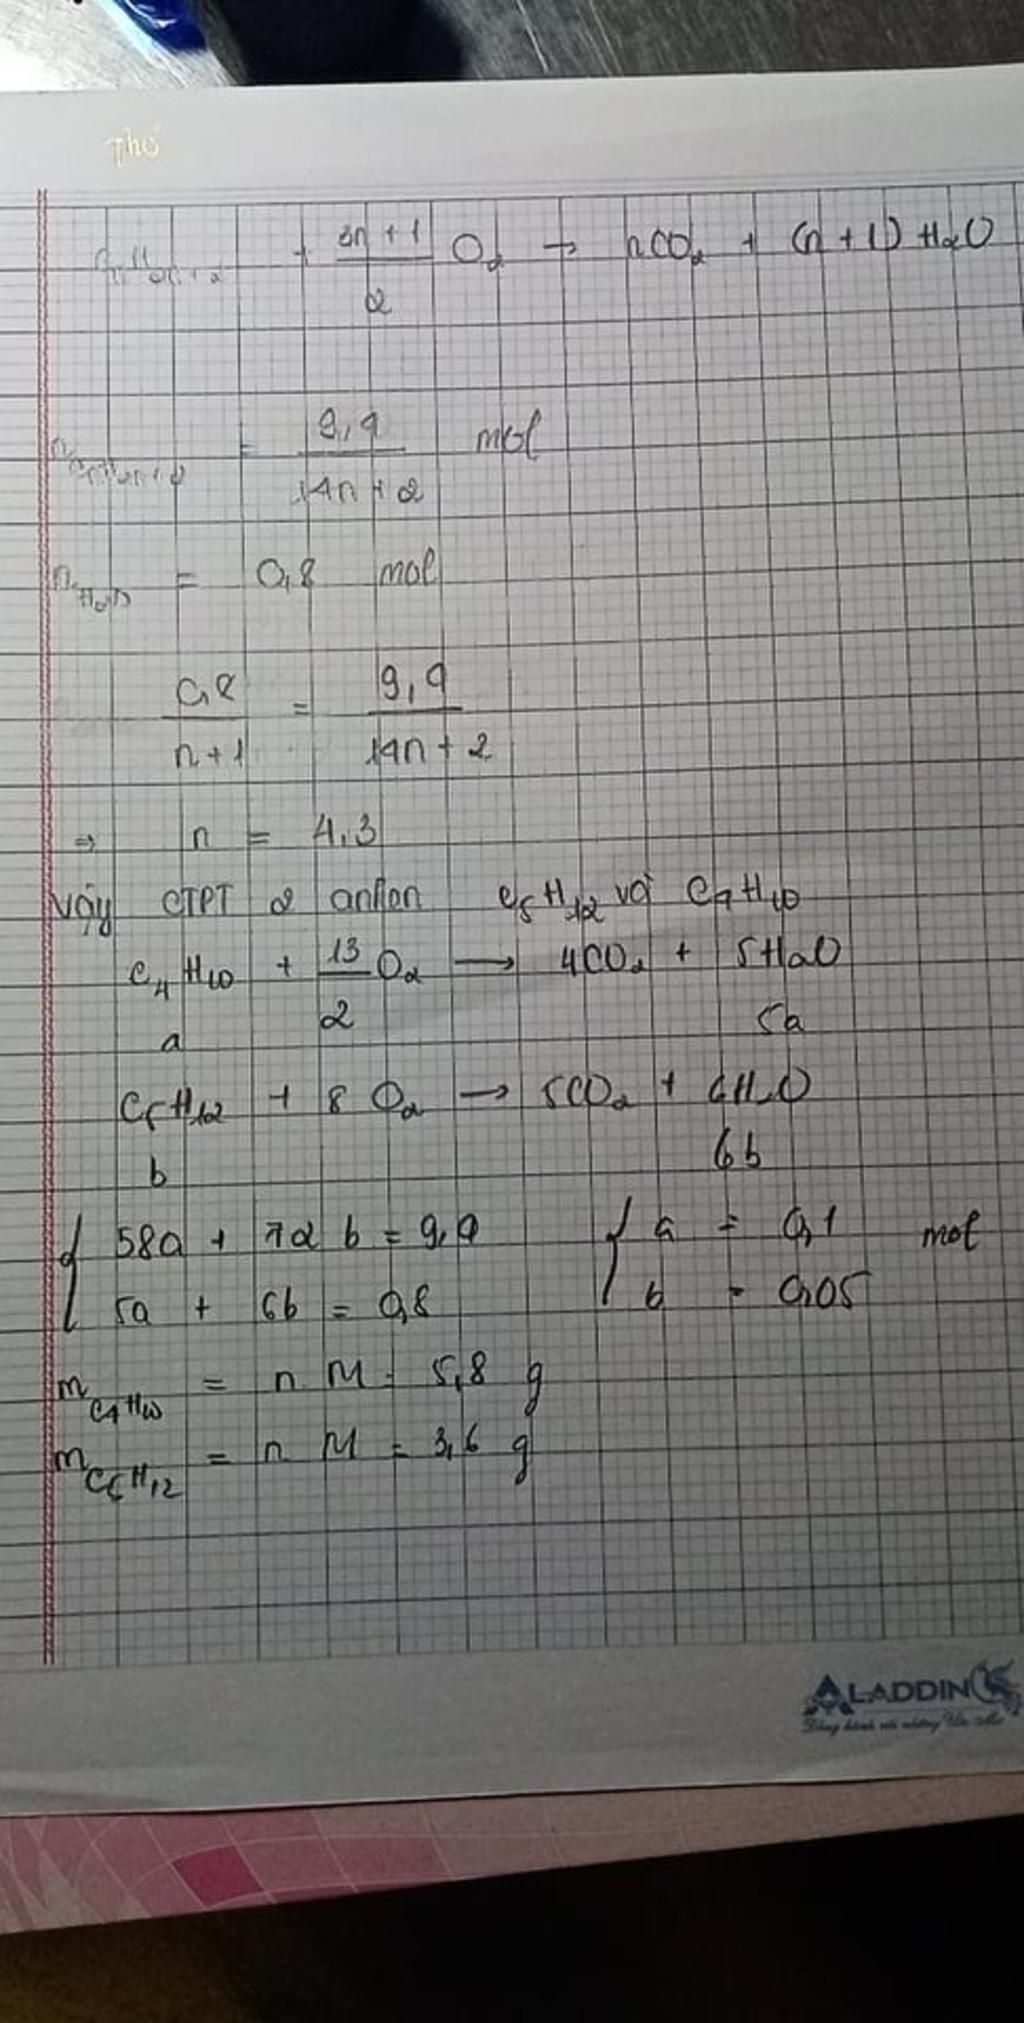 Thứ
CnH2n+2 + 3n+1/2 O2 → nCO2 + (n+1) H2O
nCnH2n+2 = 9,4/14n+2 mol
nH2O = 0,8 mol
0,8/n+1 = 9,4/14n+2
⇒ n = 4,3
Vậy CTPT 2 ankan C5H12 và C4H10
C4H10 + 13/2 O2 → 4CO2 + 5H2O
a 5a
C5H12 + 8 O2 → 5CO2 + 6H2O
b 6b
{ 58a + 72 b = 9,4 { a = 0,1 mol
5a + 6b = 0,8 b = 0,05
mC4H10 = n M = 5,8 g
mC5H12 = n M = 3,6 g
ALADDIN